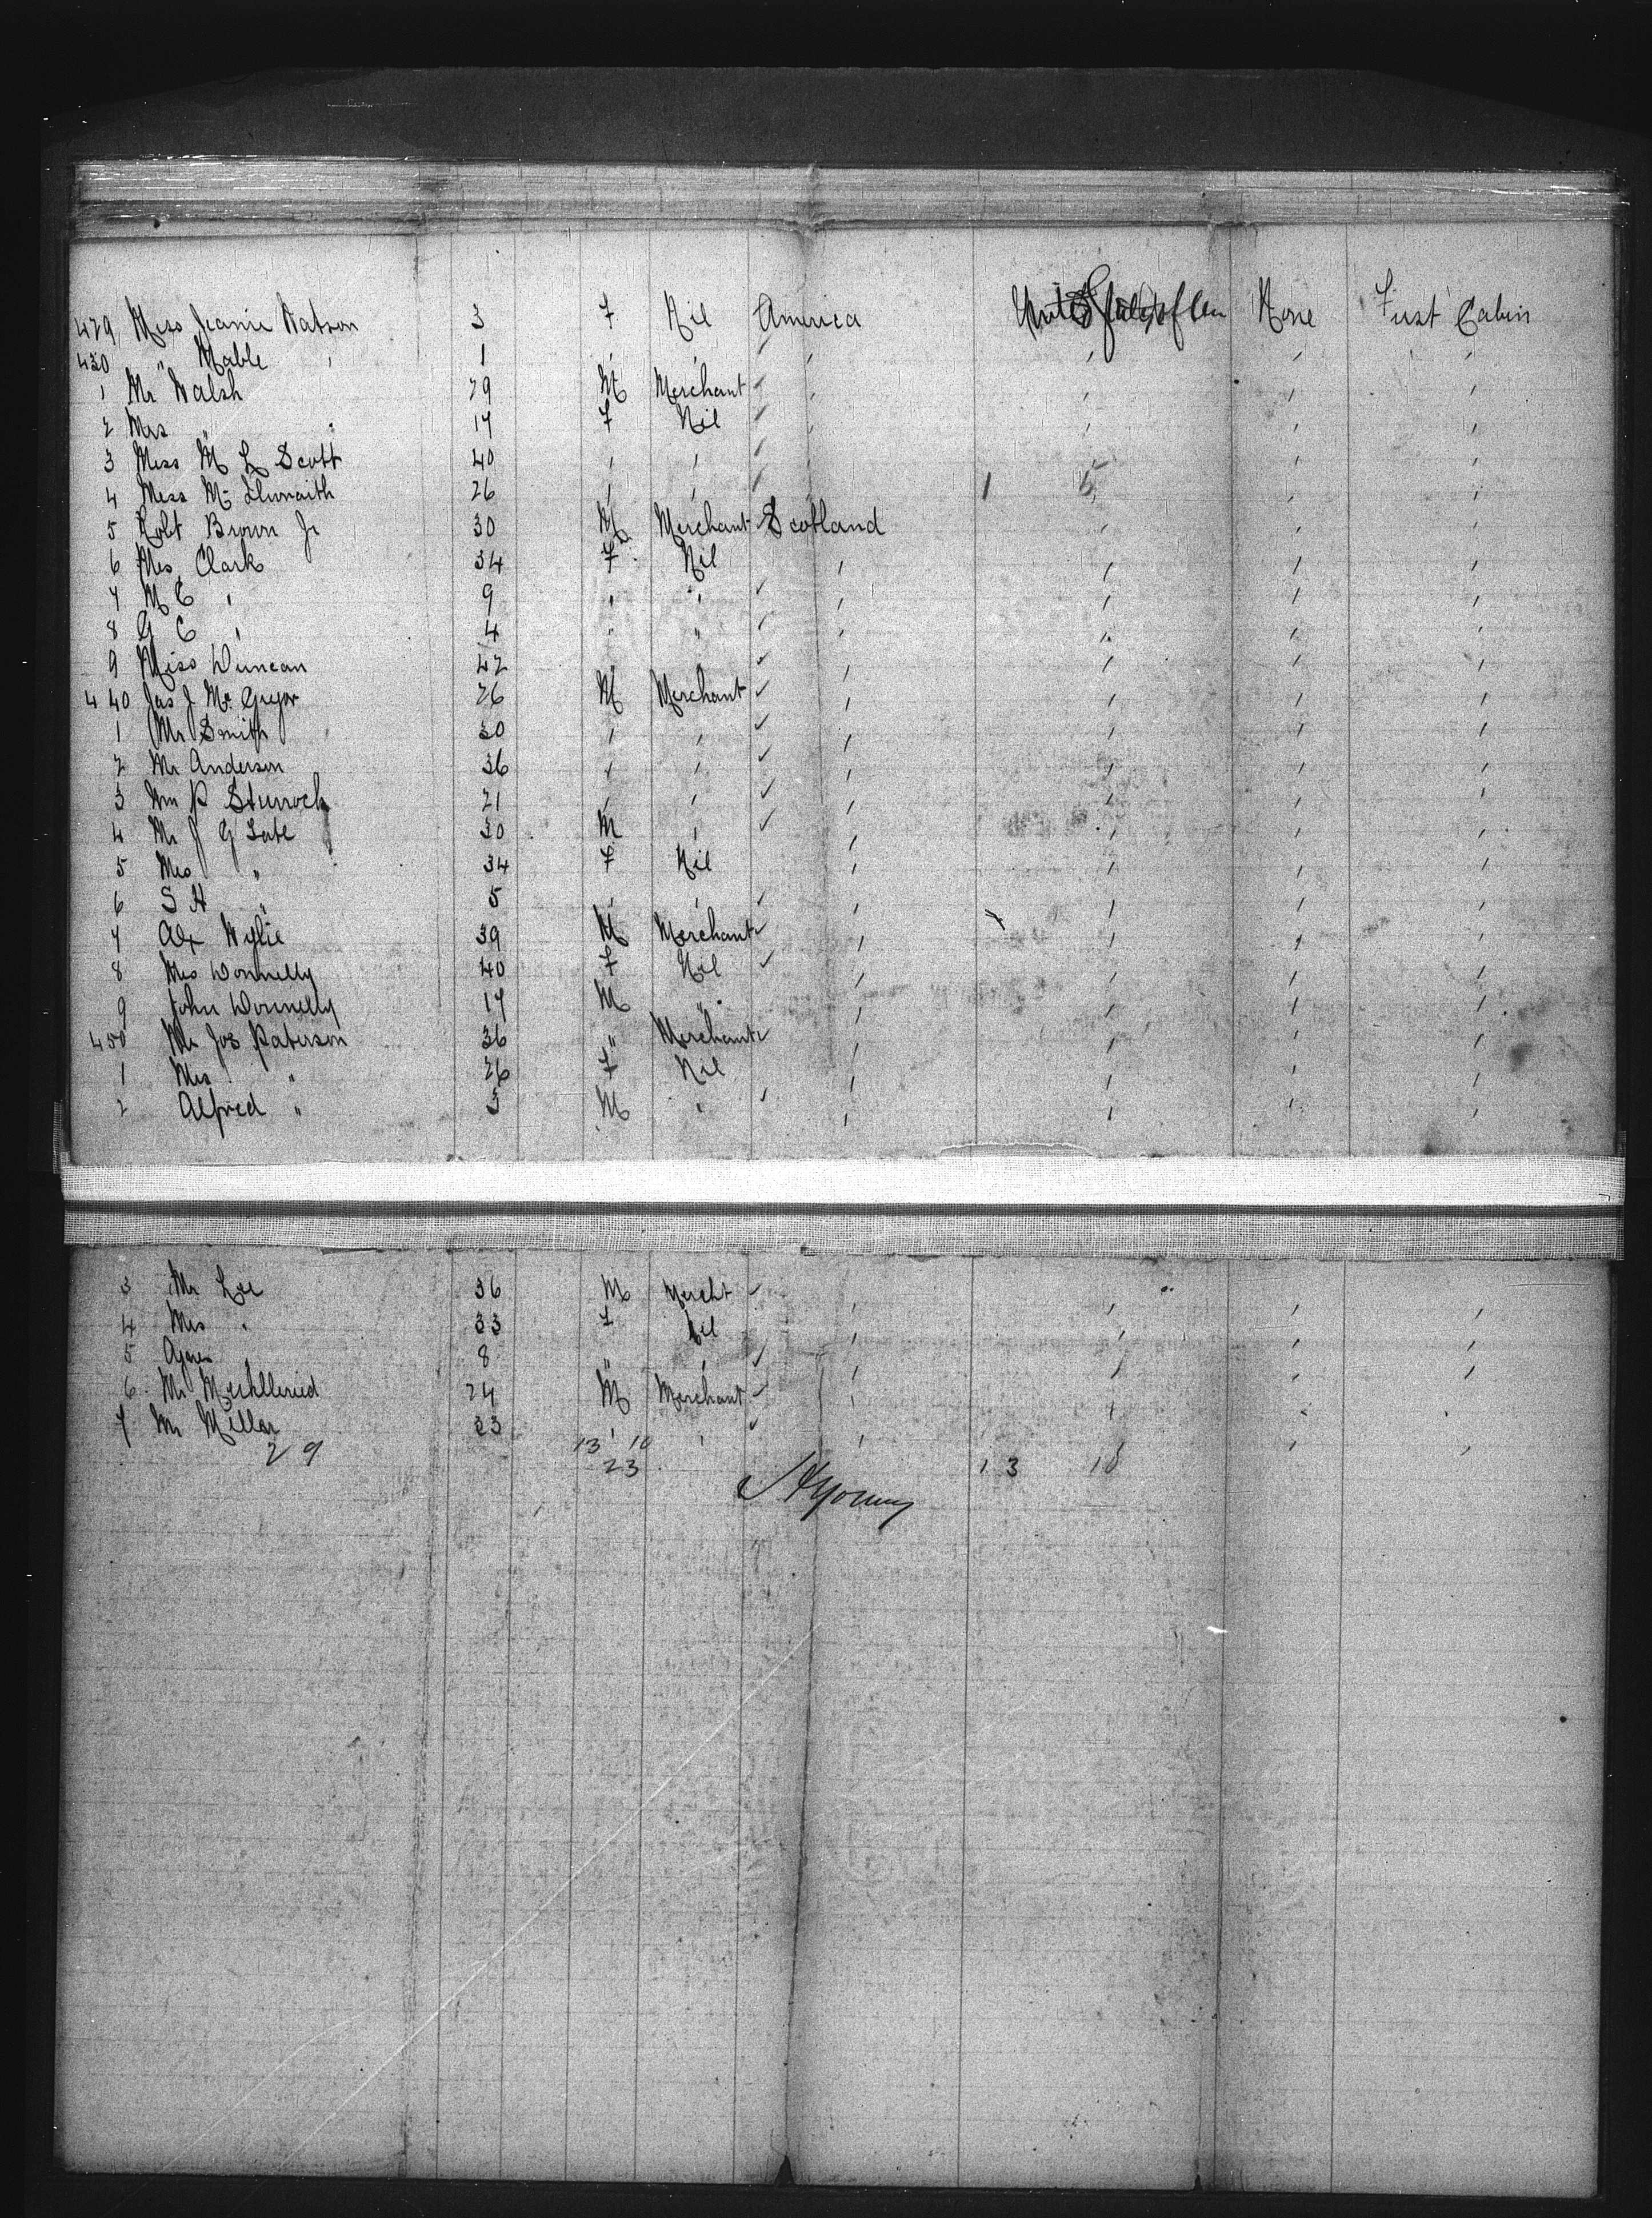 429 Miss Jeanie Watson 3 F Nil America United States None First Cabin
430 " Mable " 1 " " " " " "
1 Mr Walsh 29 M Merchant " " " "
2 Mrs " 17 F Nil " " " "
3 Miss M L Scott 40 " " " " " "
4 Miss Mc Ilwraith 26 " " " 1 5 " "
5 Robt Brown Jr 30 M Merchant Scotland " " "
6 Mrs Clark 34 F Nil " " " "
7 M C " 9 " " " " " "
8 G C " 4 " " " " " "
9 Miss Duncan 42 " " " "
440 Jas J Mc Gregor 26 M Merchant " " " "
1 Mr Smith 30 " " " " " "
2 Mr Anderson 36 " " " " " "
3 Wm P Sturrock 21 " " " " " "
4 Mr J G Tate 30 M " " " " "
5 Mrs " 34 F Nil " " " "
6 S H " 5 " " " " " "
7 Alx Wylie 39 M Merchant " " " "
8 Mrs Donnelly 40 F Nil " " " "
9 John Donnelly 17 M " " " " "
450 Mr Jos Paterson 36 " Merchant " " " "
1 Mrs " 26 F Nil " " " "
2 Alfred " 3 M " " " " "
3 Mr Lee 36 M Mercht " " " "
4 Mrs " 33 F Nil " " " "
5 Agnes " 8 " " " " " "
6 Mr 24 M Merchant " " " "
7 Mr Millar 33 " " " " " "
29 13 10 13 10
23
Young